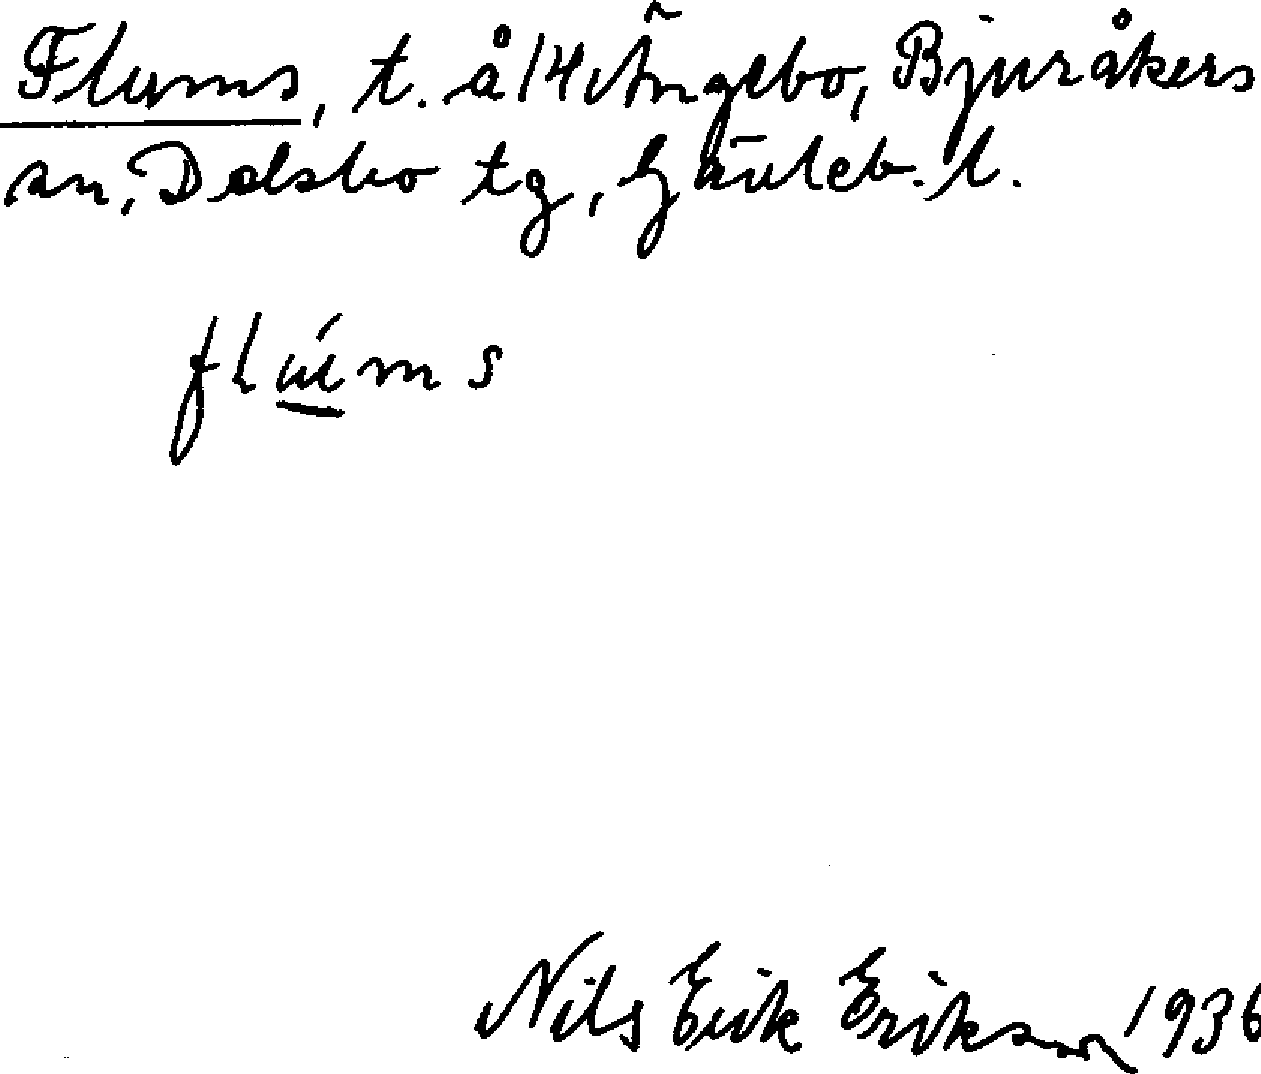 Flums, t. å 14 Ängebo, Bjuråkers
sn, Delsbo tg, Gävleb. l.
flúms
Nils Erik Eriksson 1936